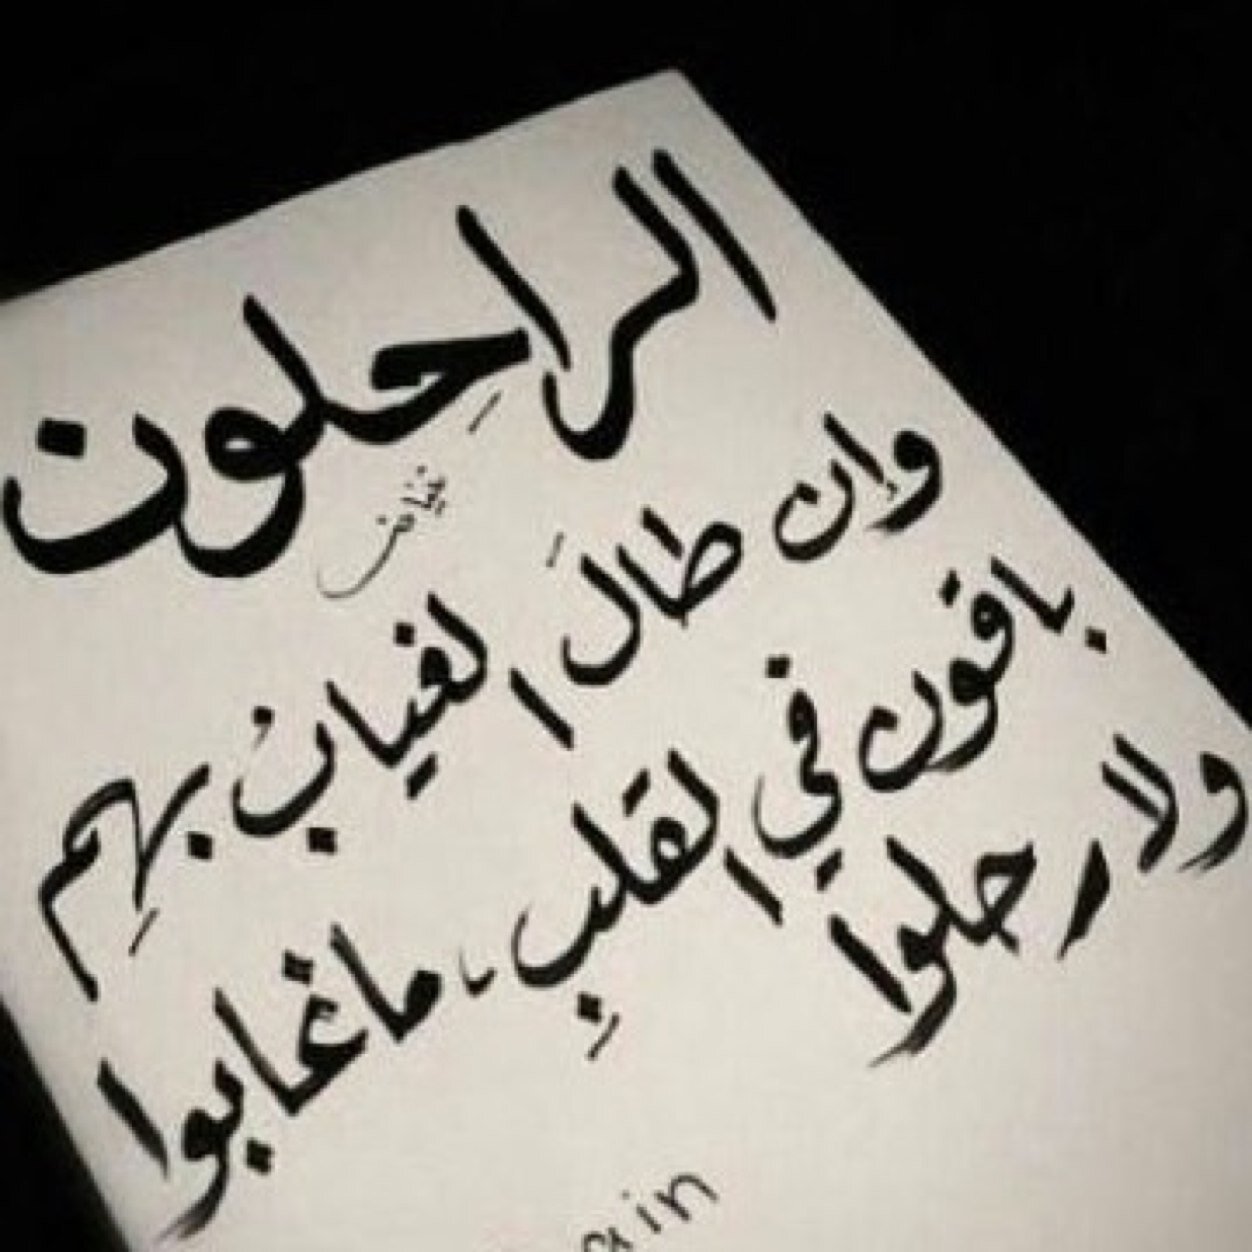 الراحِلون
وإن طالَ الغيابُ بهِم
باقون في القلبِ، ما غابوا
ولا رحلوا